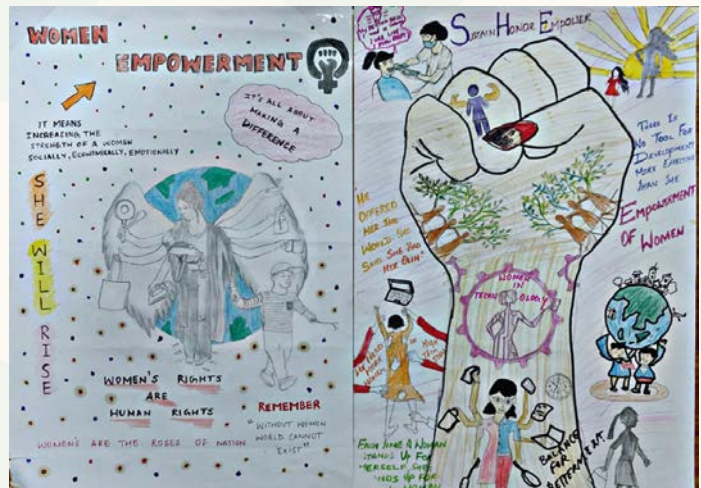 WOMEN
EMPOWERMENT
IT MEANS
INCREASING THE
STRENGTH OF A WOMEN
SOCIALLY, ECONOMICALLY, EMOTIONALLY
IT'S ALL ABOUT
MAKING A
DIFFERENCE
SHE
WILL
RISE
WOMEN'S RIGHTS
ARE
HUMAN RIGHTS
REMEMBER
"WITHOUT WOMEN
WORLD CANNOT
EXIST"
WOMEN'S ARE THE ROSES OF NATION
SUSTAIN HONOR EMPOWER
THERE IS
NO TOOL FOR
DEVELOPMENT
MORE EFFECTIVE
THAN
EMPOWERMENT
OF WOMEN
"HE
OFFERED
HER THE
WORLD. SHE
SAID SHE HAD
HER OWN"
WOMEN
IN
TECHNOLOGY
WE NEED
MORE
WOMEN
EACH TIME A WOMAN
STANDS UP FOR
HERSELF, SHE
STANDS UP FOR
WOMEN
BALANCE
FOR
BETTERMENT